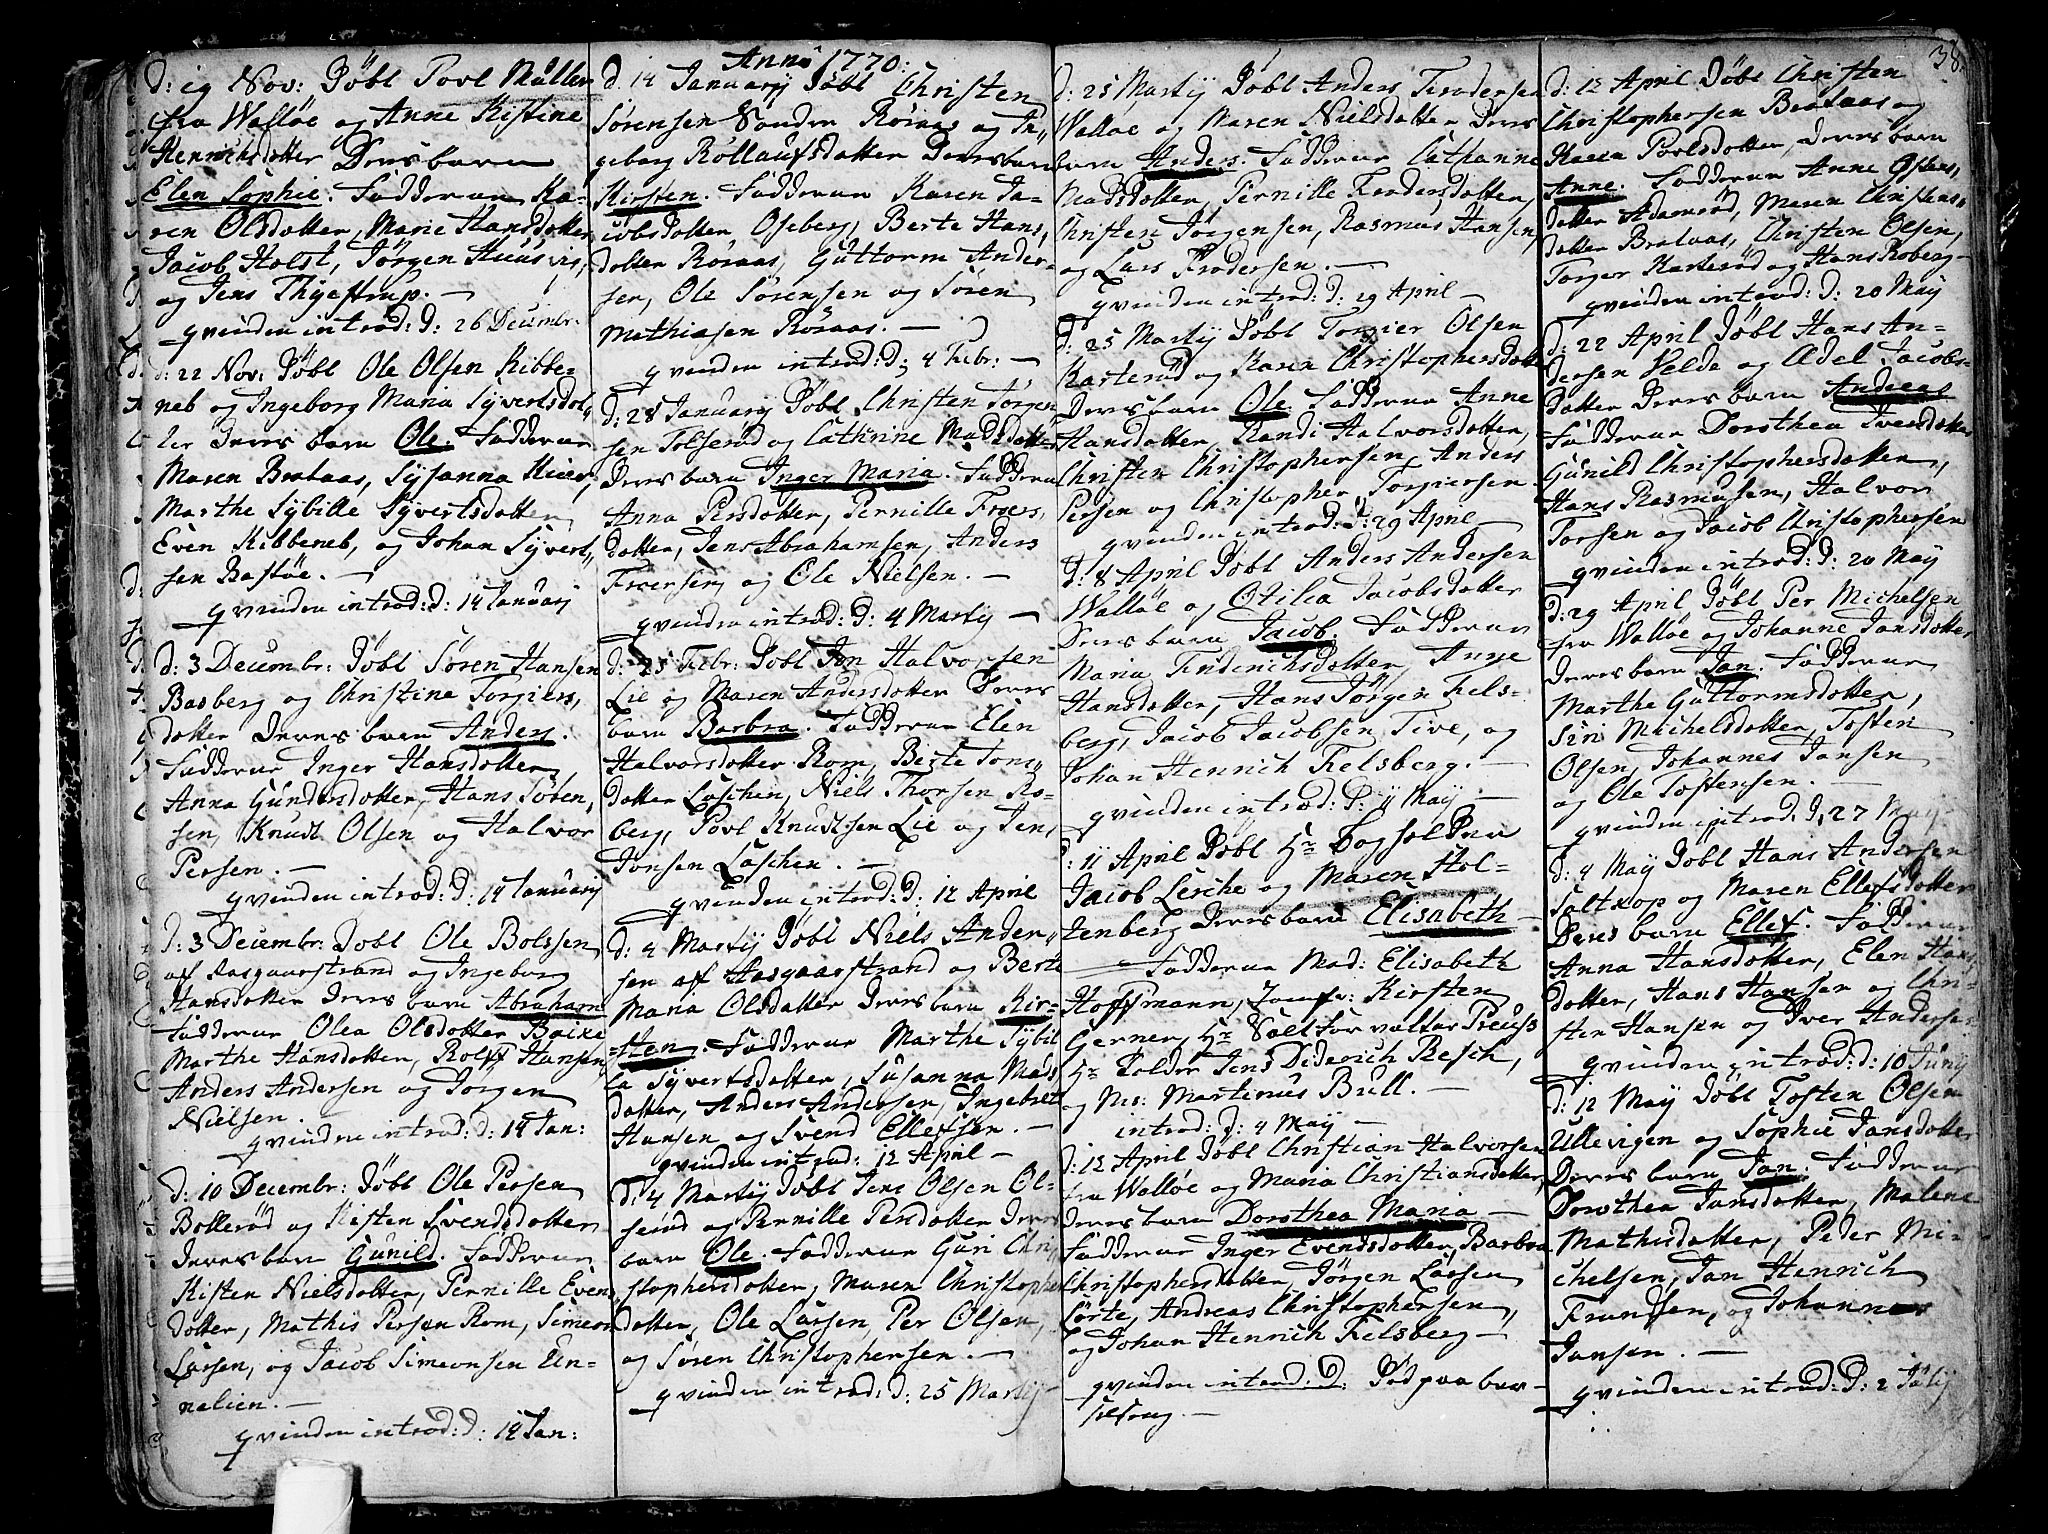 38.
d: 19 Nov: Döbt Povl Müller
fra Walløe og Anne Kistine
Henrichsdotter Deres barn
Elen Sophie. Faddere Ka-
ren Olsdotter, Marie Hansdotter
Jacob Holst, Jørgen Huusvis,
og Jens Thyestrup. —
qvinden introd: d: 26 Decembr.
d: 22 Nov: Döbt Ole Olsen Kibbe-
neb og Ingeborg Maria Syvertsdot,,
ter Deres barn Ole. Faddere
Maren Brataas, Sysanna Kier,
Marthe Sybille Syvertsdotter,
Even Kibbeneb, og Johan Syvert,,
sen Bastøe. —
qvinden introd: d: 14 January
d: 3 Decembr: Döbt Søren Hansen
Basberg og Christine Torgiers,
dotter Deres barn Anders.
Faddere Inger Hansdotter,
Anna Gundersdotter, Hans Søren,
sen, Knudt Olsen og Halvor
Persen. —
qvinden introd: d: 14 January
d: 3 Decembr: Döbt Ole Bolssen
af Aasgaarstrand og Ingeborg
Hansdotter Deres barn Abraham
Faddere Olea Olsdotter Bakke
Marthe Hansdotter, Rolff Hansen,
Anders Andersen og Jørgen
Nielsen.
qvinden introd: d: 14 Jan:
d: 10 Decembr: Döbt Ole Persen
Bollerød og Kisten Svendsdotter
Deres barn Gunild. Faddere
Kisten Nielsdotter, Pernille Even,
dotter, Mathis Persen Rom, Simeon
Larsen, og Jacob Simeonsen Un-
nelien. —
qvinden introd: d: 14 Jan:
Anno 1770:
d. 14 January Döbt Christen
Sørensen Søndre Røraas og In,,
geborg Rollaufsdotter Deres barn
Kirsten. Faddere Karen Ja-
cobsdotter Oseberg, Berte Hans,
dotter Røraas, Guttorm Ander-
sen, Ole Sørensen og Søren
Mathiasen Røraas. —
qvinden introd: d: 4 Febr: —
d: 28 January Döbt Christen Jørgen
sen Tolsrød og Cathrine Madsdotter
Deres barn Inger Maria. Faddere
Anna Persdotter, Pernille Froers,
dotter, Jens Abrahamsen, Anders
Froersen og Ole Nielsen. —
qvinden introd: d: 4 Martij —
d: 25 Febr: Döbt Jon Halvorsen
Lie og Maren Andersdotter Deres
barn Barbra. Faddere Elen
Halvorsdotter Rom, Berte Jons,,
dotter Laschen, Niels Thorsen Ro-
berg, Povl Knudtsen Lie og Jens
Jonsen Laschen. —
qvinden introd: d: 12 April
d: 4 Martij Döbt Niels Ander,,
sen af Aasgaarstrand og Berte
Maria Olsdatter Deres barn Kir-
sten. Faddere Marthe Sybil
la Syvertsdotter, Susanna Mads
dotter, Anders Andersen, Ingebrett
Hansen og Svend Ellefsen. —
qvinden introd: 12 April —
d: 4 Martij Döbt Jens Olsen Ol-
send og Pernille Persdotter Deres
barn Ole. Faddere Guri Chri,
stophersdotter, Maren Christopher
dotter, Ole Larsen, Per Olsen,
og Søren Christophersen. —
qvinden introd: d: 25 Martij
d: 25 Martij Döbt Anders Frodersen
Walløe og Maren Nielsdotter Deres
barn Anders. Faddere Cathrine
Madsdotter, Pernille Frodersdotter,
Christen Jørgensen, Rasmus Hansen,
og Lars Frodersen. —
qvinden introd: d: 29 April —
d: 25 Martij Döbt Torgier Olsen
Karterød og Karen Christophersdotter
Deres barn Ole. Faddere Anne
Hansdotter, Randi Halvorsdotter,
Christen Christophersen, Anders
Persen og Christopher Torgiersen.
qvinden introd: d: 29 April —
d: 8 April Döbt Anders Andersen
Walløe og Otilia Jacobsdotter
Deres barn Jacob. Faddere
Maria Friderichsdotter, Anne
Hansdotter, Hans Jørgen Fels-
berg, Jacob Jacobsen Five, og
Johan Henrich Felsberg. —
qvinden introd: d: 4 May —
d: 11 April Döbt Hr Fogh
Jacob Lerche og Maren Hol-
tenberg Deres barn Elisabeth —
Faddere Mad: Elisabeth
Hoffmann, Jomfr: Kirsten
Gerner, Hr Saltforvalter Preuss
Hr Jens Diderich Resch,
og Ms: Martinus Bull. —
introd: d: 4 May —
d: 12 April Döbt Christian Halvorsen
fra Walløe og Maria Christiansdotter,
Deres barn Dorothea Maria —
Faddere Inger Evensdotter, Barbra
Christophersdotter, Jørgen Larsen
Lørte, Andreas Christophersen,
og Johan Henrich Felsberg —
qvinden introd: d: Död paa bar-
selseng. —
d: 12 April Döbt Christen
Christophersen Brataas og
Karen Povlsdotter, Deres barn
Anne. Faddere Anne Ostens,
dotter Adamrød, Maren Christens,,
dotter Brataas, Christen Olsen,
Torger Karterød og Hans Roberg —
qvinden introd: d: 20 May
d: 22 April Döbt Hans An-
dersen Velde og Adel Jacobs-
dotter Deres barn Andreas
Faddere Dorothea Iversdotter
Gunild Christophersdotter,
Hans Rasmusen, Halvor
Torsen og Jacob Christophersen
qvinden introd: d: 20 May
d: 29 April Döbt Per Michelsen
fra Walløe og Johanne Jansdotter
Deres barn Jan. Faddere
Marthe Guttormsdotter,
Siri Michelsdotter, Tosten
Olsen, Johannes Jansen
og Ole Tostensen. —
qvinden introd: d: 27 May
d: 4 May Döbt Hans Andersen
Saltkop og Maren Ellefsdotter
Deres barn Ellef. Faddere
Anna Hansdotter, Elen Hans
dotter, Hans Hansen og Chri-
sten Hansen og Iver Andersen
qvinden introd: d: 10 Junij
d: 12 May Döbt Tosten Olsen
Ullevigen og Sophie Jansdotter
Deres barn Jan. Faddere
Dorothea Jansdotter, Malene
Mathisdotter, Peder Mi-
chelsen, Jan Henrich
Frandsen, og Johannes
Jansen. —
qvinden introd: d: 2 Julij